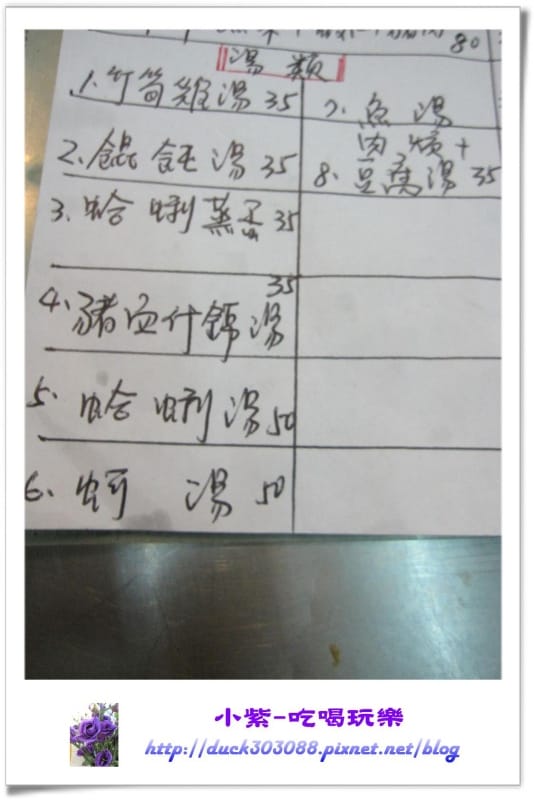 80
湯類
1. 竹筍雞湯 35
2. 餛飩湯 35
3. 蛤蜊蒸蛋 35
35
4. 豬血什錦湯
5. 蛤蜊湯 50
6. 蚵 湯 50
7. 魚 湯
肉羹+
8. 豆腐湯 35
小紫-吃喝玩樂
http://duck303088.pixnet.net/blog